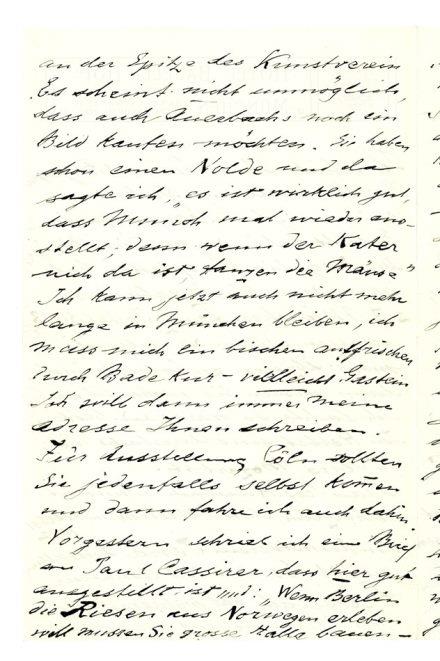 an der Spitze des Kunstverein
Es scheint nicht unmöglich,
dass auch Auerbachs noch ein
Bild kaufen möchten. Sie haben
schon einen Nolde und da
sagte ich, „es ist wirklich gut,
dass Munch mal wieder aus-
stellt, denn wenn der Kater
nich da ist, tanzen die Mäuse"
Ich kann jetzt auch nicht mehr
lange in München bleiben, ich
muss mich ein bischen auffrischen
durch Bade kur – vielleicht Gastein
Ich will dann immer meine
Adresse Ihnen schreiben.
Für Ausstellung Cöln sollten
Sie jedenfalls selbst kommen
und dann fahre ich auch dahin.
Vorgestern schrieb ich ein Brief
an Paul Cassirer, dass hier gut
ausgestellt ist und: „Wenn Berlin
die Riesen aus Norwegen erleben
will müssen Sie grosse Halle bauen –